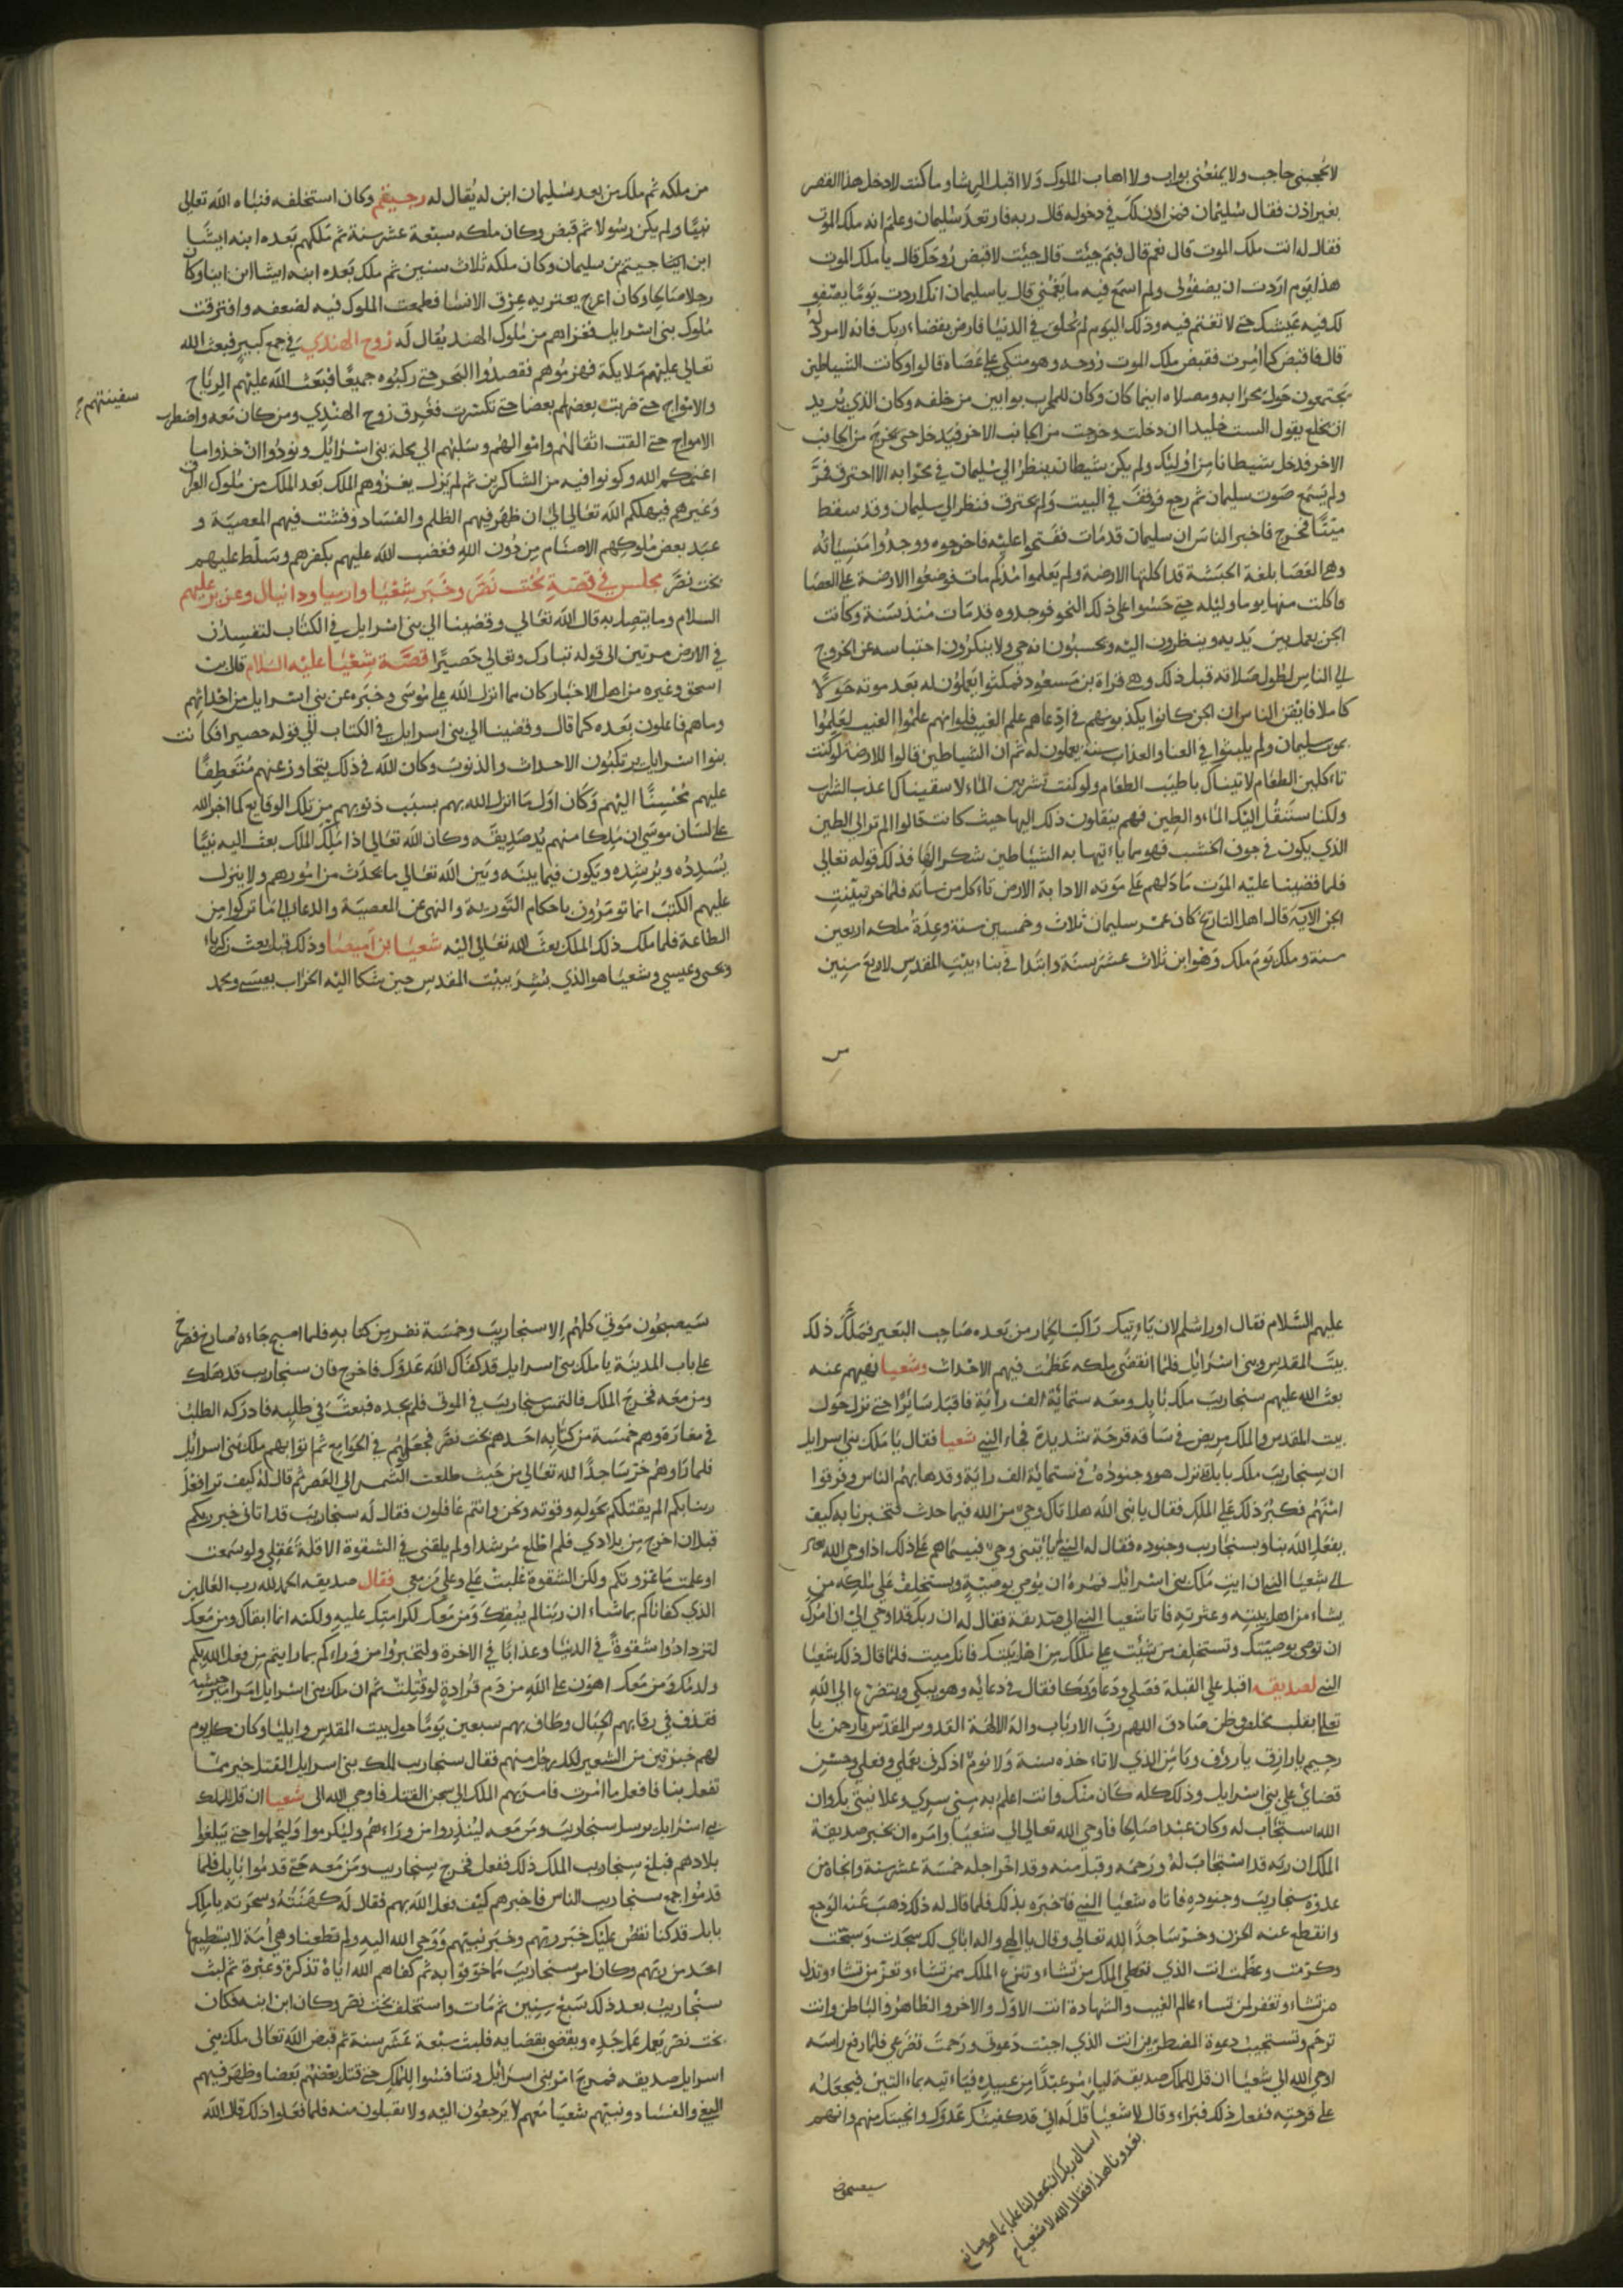 لا يحجبني حاجب ولا يمنعني بواب ولا اهاب الملوك ولا اقبل الرشا وما كنت لادخل هذا القصر
بغير اذن فقال سليمان فمن اذن لك في دخوله قال ربه فارتعد سليمان وعلم انه ملك الموت
فقال له انت ملك الموت قال نعم قال فبم جيت قال جيت لاقبض روحك قال يا ملك الموت
هذا يوم اردت ان يصفو لي ولم اسمع فيه ما يغمني قال يا سليمان انك اردت يوما يصفو
لك فيه عيشك حتى لا تغتم فيه وذلك اليوم لم يخلق في الدنيا فارض بقضاء ربك فانه لا مرد له
قال فاقبض كما امرت فقبض ملك الموت روحه وهو متكي على عصاه قالوا وكانت الشياطين
تجتمعون حول محرابه ومصلاه اينما كان وكان للمحراب بوابين من خلفه وكان الذي يريد
ان يخلع يقول الست خليدا ان دخلت وخرجت من الجانب الاخر فيدخل حتى يخرج من الجانب
الاخر فدخل شيطانا من اوليك ولم يكن شيطان ينظر الى سليمان في محرابه الا احترق فمر
ولم يسمع صوت سليمان ثم رجع فوقف في البيت ولم يحترق فنظر الى سليمان وقد سقط
ميتا فخرج فاخبر الناس ان سليمان قد مات ففتحوا عليه فاخرجوه ووجدوا منسياته
وهي العصا بلغة الحبشة قد اكلتها الارضة ولم يعلموا منذ كم مات فوضعوا الارضة على العصا
فاكلت منها يوما وليله حتى حسبوا على ذلك النحو فوجدوه قد مات منذ سنة وكانت
الجن يعمل بين يديه وينظرون اليه ويحسبون انه حي ولا ينكرون احتباسه عن الخروج
الى الناس لطول صلاته قبل ذلك وهي قراة بن مسعود فمكثوا يعملون له بعد موته حولا
كاملا فايقن الناس ان الجن كانوا يكذبونهم في ادعاهم علم الغيب فلو انهم علموا الغيب لعلموا
بموت سليمان ولم يلبثوا في العنا والعذاب سنة يعملون له ثم ان الشياطين قالوا للارضة لو كنت
تاءكلين الطعام لاتيناك باطيب الطعام ولو كنت تشربين الماء لاسقيناك اعذب الشراب
ولكنا سننقل اليك الماء والطين فهم ينقلون ذلك اليها حيث كانت قالوا الم تر الى الطين
الذي يكون في جوف الخشب فهو مما ياءتيها به الشياطين شكرا لها فذلك قوله تعالى
فلما قضينا عليه الموت ما دلهم على موته الا دابة الارض تاءكل منساته فلما خر تبينت
الجن الاية قال اهل التاريخ كان عمر سليمان ثلاث وخمسين سنة وعدة ملكه اربعين
سنة وملك يوم ملك وهو ابن ثلاث عشر سنة وابتدا في بناء بيت المقدس لاربع سنين
من
من ملكه ثم ملك من بعد سليمان ابن له يقال له رجيعم وكان استخلفه فنباه الله تعالى
نبيا ولم يكن رسولا ثم قبض وكان ملكه سبعة عشر سنة ثم ملكهم بعده ابنه ايشا
ابن رجيعم بن سليمان وكان ملكه ثلاث سنين ثم ملك بعده ابنه ايشا ابن ابيا وكان
رجلا صالحا وكان اعرج يعتريه عرق الانسا فطمعت الملوك فيه لضعفه وافترقت
ملوك بني اسرايل فغزاهم من ملوك الهند يقال له زوح الهندي في جمع كبير فبعث الله
تعالى عليهم ملايكة فهزموهم فقصدوا البحر حتى ركبوه جميعا فبعث الله عليهم الرياح
والامواج حتى ضربت بعضهم بعضا حتى تكسرت فغرق زوح الهندي ومن كان معه واضطرب
سفينتهم
الامواج حتى القت اثقالهم واموالهم وسلبهم الى محلة بني اسرائيل ونودوا ان خذوا ما
اغنمكم الله وكونوا فيه من الشاكرين ثم لم يزل يغزوهم الملك بعد الملك من ملوك العراق
وغيرهم فيهلكم الله تعالى الى ان ظهر فيهم الظلم والفساد وفشت فيهم المعصية و
عبد بعض ملوكهم الاصنام من دون الله فغضب الله عليهم بكفرهم وسلط عليهم
بخت نصر مجلس في قصة بخت نصر وخبر شعيا وارميا ودانيال وعزير عليهم
السلام وما يتصل به قال الله تعالى وقضينا الى بني اسرايل في الكتاب لتفسدن
في الارض مرتين الى قوله تبارك وتعالى حصيرا قصة شعيا عليه السلام قال بن
اسحق وغيره من اهل الاخبار كان مما انزل الله على موسى وخبره عن بني اسرايل من احداثهم
وما هم فاعلون بعده كما قال وقضينا الى بني اسرايل في الكتاب الى قوله حصيرا فكانت
بنوا اسرايل يرتكبون الاحداث والذنوب وكان الله في ذلك يتجاوز عنهم متعطفا
عليهم محسنا اليهم وكان اول ما انزل الله بهم بسبب ذنوبهم من تلك الوقايع كما اخبر الله
على لسان موسى ان ملكا منهم يدعي صديقه وكان الله تعالى اذا ملك الملك بعث اليه نبيا
يسدده ويرشده ويكون فيما بينه وبين الله تعالى ما يحدث من امورهم ولا ينزل
عليهم الكتب انما تومرون باحكام التورية والنهي عن المعصية والدعا الى ما تركوا من
الطاعة فلما ملك ذلك الملك بعث الله تعالى اليه شعيا بن اميصيا وذلك قبل بعث زكرياء
ويحيى وعيسى وشعيا هو الذي بشر ببيت المقدس حين شكا اليه الخراب بعيسى ومحمد
عليهم السلام فقال اوراشلم لان ياءتيك راكب الحمار من بعده صاحب البعير فملك ذلك
بيت المقدس وبني اسرائيل فلما انقضى ملكه عظمت فيهم الاحداث وشعيا نهيهم عنه
بعث الله عليهم سنجاريب ملك بابل ومعه ستمائة الف راية فاقبل سائرا حتى نزل حول
بيت المقدس والملك مريض في ساقه قرحة شديدة فجاء النبي شعيا فقال يا ملك بني اسرايل
ان سنجاريب ملك بابل نزل هو وجنوده في ستمائة الف راية وقد هابهم الناس وفرقوا
منهم فكبر ذلك على الملك فقال يا نبي الله هل اتاك وحي من الله فيما حدث فتخبرنا به كيف
يفعل الله بنا وبسنجاريب وجنوده فقال له النبي لم ياءتيني وحي فبينما هم على ذلك اذ اوحى الله
الى شعيا النبي ان ايت ملك بني اسرائيل فمره ان يوصي بوصية ويستخلف على ملكه من
يشاء من اهل بيته وعترته فاتا شعيا النبي الى صديقة فقال له ان ربك قد اوحى الي ان امرك
ان توصي بوصيتك وتستخلف من شيت على ملكك من اهل بيتك فانك ميت فلما قال ذلك شعيا
النبي لصديقه اقبل على القبلة فصلى ودعا وبكا فقال في دعائه وهو يبكي ويتضرع الى الله
تعالى بقلب مخلص وظن صادق اللهم رب الارباب واله الالهة القدوس المقدس يا رحمن يا
رحيم يا رازق يا روف ويا من الذي لا تاءخذه سنة ولا نوم اذكرني بعملي وفعلي وحسن
قضاي على بني اسرايل وذلك كله كان منك وانت اعلم به مني سري وعلانيتي بك وان
الله استجاب له وكان عبدا صالحا فاوحى الله تعالى الى شعيا وامره ان يخبر صديقة
الملك ان ربه قد استجاب له ورحمه وقبل منه وقد اخر اجله خمسة عشر سنة وانجاه من
عدوه سنجاريب وجنوده فاتاه شعيا النبي فاخبره بذلك فلما قال له ذلك ذهب عنه الوجع
وانقطع عنه الحزن وخر ساجدا لله تعالى وقال يا الهي واله اباي لك سجدت وسبحت
وكرمت وعظمت انت الذي تعطي الملك من تشاء وتنزع الملك ممن تشاء وتعز من تشاء وتذل
من تشاء وتغفر لمن تشاء عالم الغيب والشهادة انت الاول والاخر والظاهر والباطن وانت
ترحم وتستجيب دعوة المضطرين انت الذي اجبت دعوتي ورحمت تضرعي فلما رفع راسه
اوحى الله الى شعيا ان قل للملك صديقة لياءمر عبدا من عبيده فياءتيه بماء التين فيجعله
على قرحته ففعل ذلك فبراء وقال لاشعيا قل له اني قد كفيتك عدوك وانجيتك منهم وانهم
اسال ربك ان يجعل لنا علما بما هو صانع
بعدونا هذا فقال الله لاشعياء
سيصبحون
سيصبحون موتى كلهم الا سنجاريب وخمسة نفر من كتابه فلما اصبح جاءه صارخ فصرخ
على باب المدينة يا ملك بني اسرايل قد كفاك الله عدوك فاخرج فان سنجاريب قد هلك
ومن معه فخرج الملك فالتمس سنجاريب في الموتى فلم يجده فبعث في طلبه فادركه الطلب
في مغارة وهم خمسة من كتابه احدهم بخت نصر فجعلهم في الجوامع ثم اتوا بهم ملك بني اسرايل
فلما راوهم خر ساجدا لله تعالى من حيث طلعت الشمس الى العصر ثم قال له كيف ترا فعل
ربنا بكم الم يقتلكم بحوله وقوته ونحن وانتم غافلون فقال له سنجاريب قد اتاني خبر ربكم
قبل ان اخرج من بلادي فلم اطع مرشدا ولم يلقني في الشقوة الا قلة عقلي ولو سمعت
او علمت ما غزوتكم ولكن الشقوة غلبت علي وعلى من معي فقال صديقه الحمد لله رب العالمين
الذي كفاناكم بما شاء ان ربنا لم يبقك ومن معك لكرامتك عليه ولكنه انما ابقاك ومن معك
لتزدادوا شقوة في الدنيا وعذابا في الاخرة ولتخبروا من وراءكم بما رايتم من فعل الله بكم
ولدمك ومن معك اهون على الله من دم قرادة لو قتلت ثم ان ملك بني اسرايل امر امير جيشه
فقذف في رقابهم الحبال وطاف بهم سبعين يوما حول بيت المقدس وايليا وكان كل يوم
لهم خبزتين من الشعير لكل رجل منهم فقال سنجاريب للملك بني اسرايل القتل خير مما
تفعل بنا فافعل ما امرت فامر بهم الملك الى سجن القتل فاوحى الله الى شعيا ان قل للملك
بني اسرائيل يرسل سنجاريب ومن معه لينذروا من وراءهم وليكرموا وليحملوا حتى يبلغوا
بلادهم فبلغ سنجاريب الملك ذلك ففعل فخرج سنجاريب ومن معه حتى قدموا بابل فلما
قدموا جمع سنجاريب الناس فاخبرهم كيف فعل الله بهم فقال له كهنته وسحرته يا ملك
بابل قد كنا نقص عليك خبر ربهم وخبر نبيهم ووحي الله اليه ولم تطعنا وهي امة لا يستطيعها
احد من ربهم وكان امر سنجاريب ما خوفوا به ثم كفاهم الله اياه تذكرة وعبرة ثم لبث
سنجاريب بعد ذلك سبع سنين ثم مات واستخلف بخت نصر وكان ابن ابنه فكان
بخت نصر يعمل عمل جده ويقضي بقضايه فلبث سبعة عشر سنة ثم قبض الله تعالى ملك بني
اسرايل صديقه فمرج امر بني اسرائيل وتنافسوا للملك حتى قتل بعضهم بعضا وظهر فيهم
البغي والفساد ونبيهم شعيا معهم لا يرجعون اليه ولا يقبلون منه فلما فعلوا ذلك قال الله